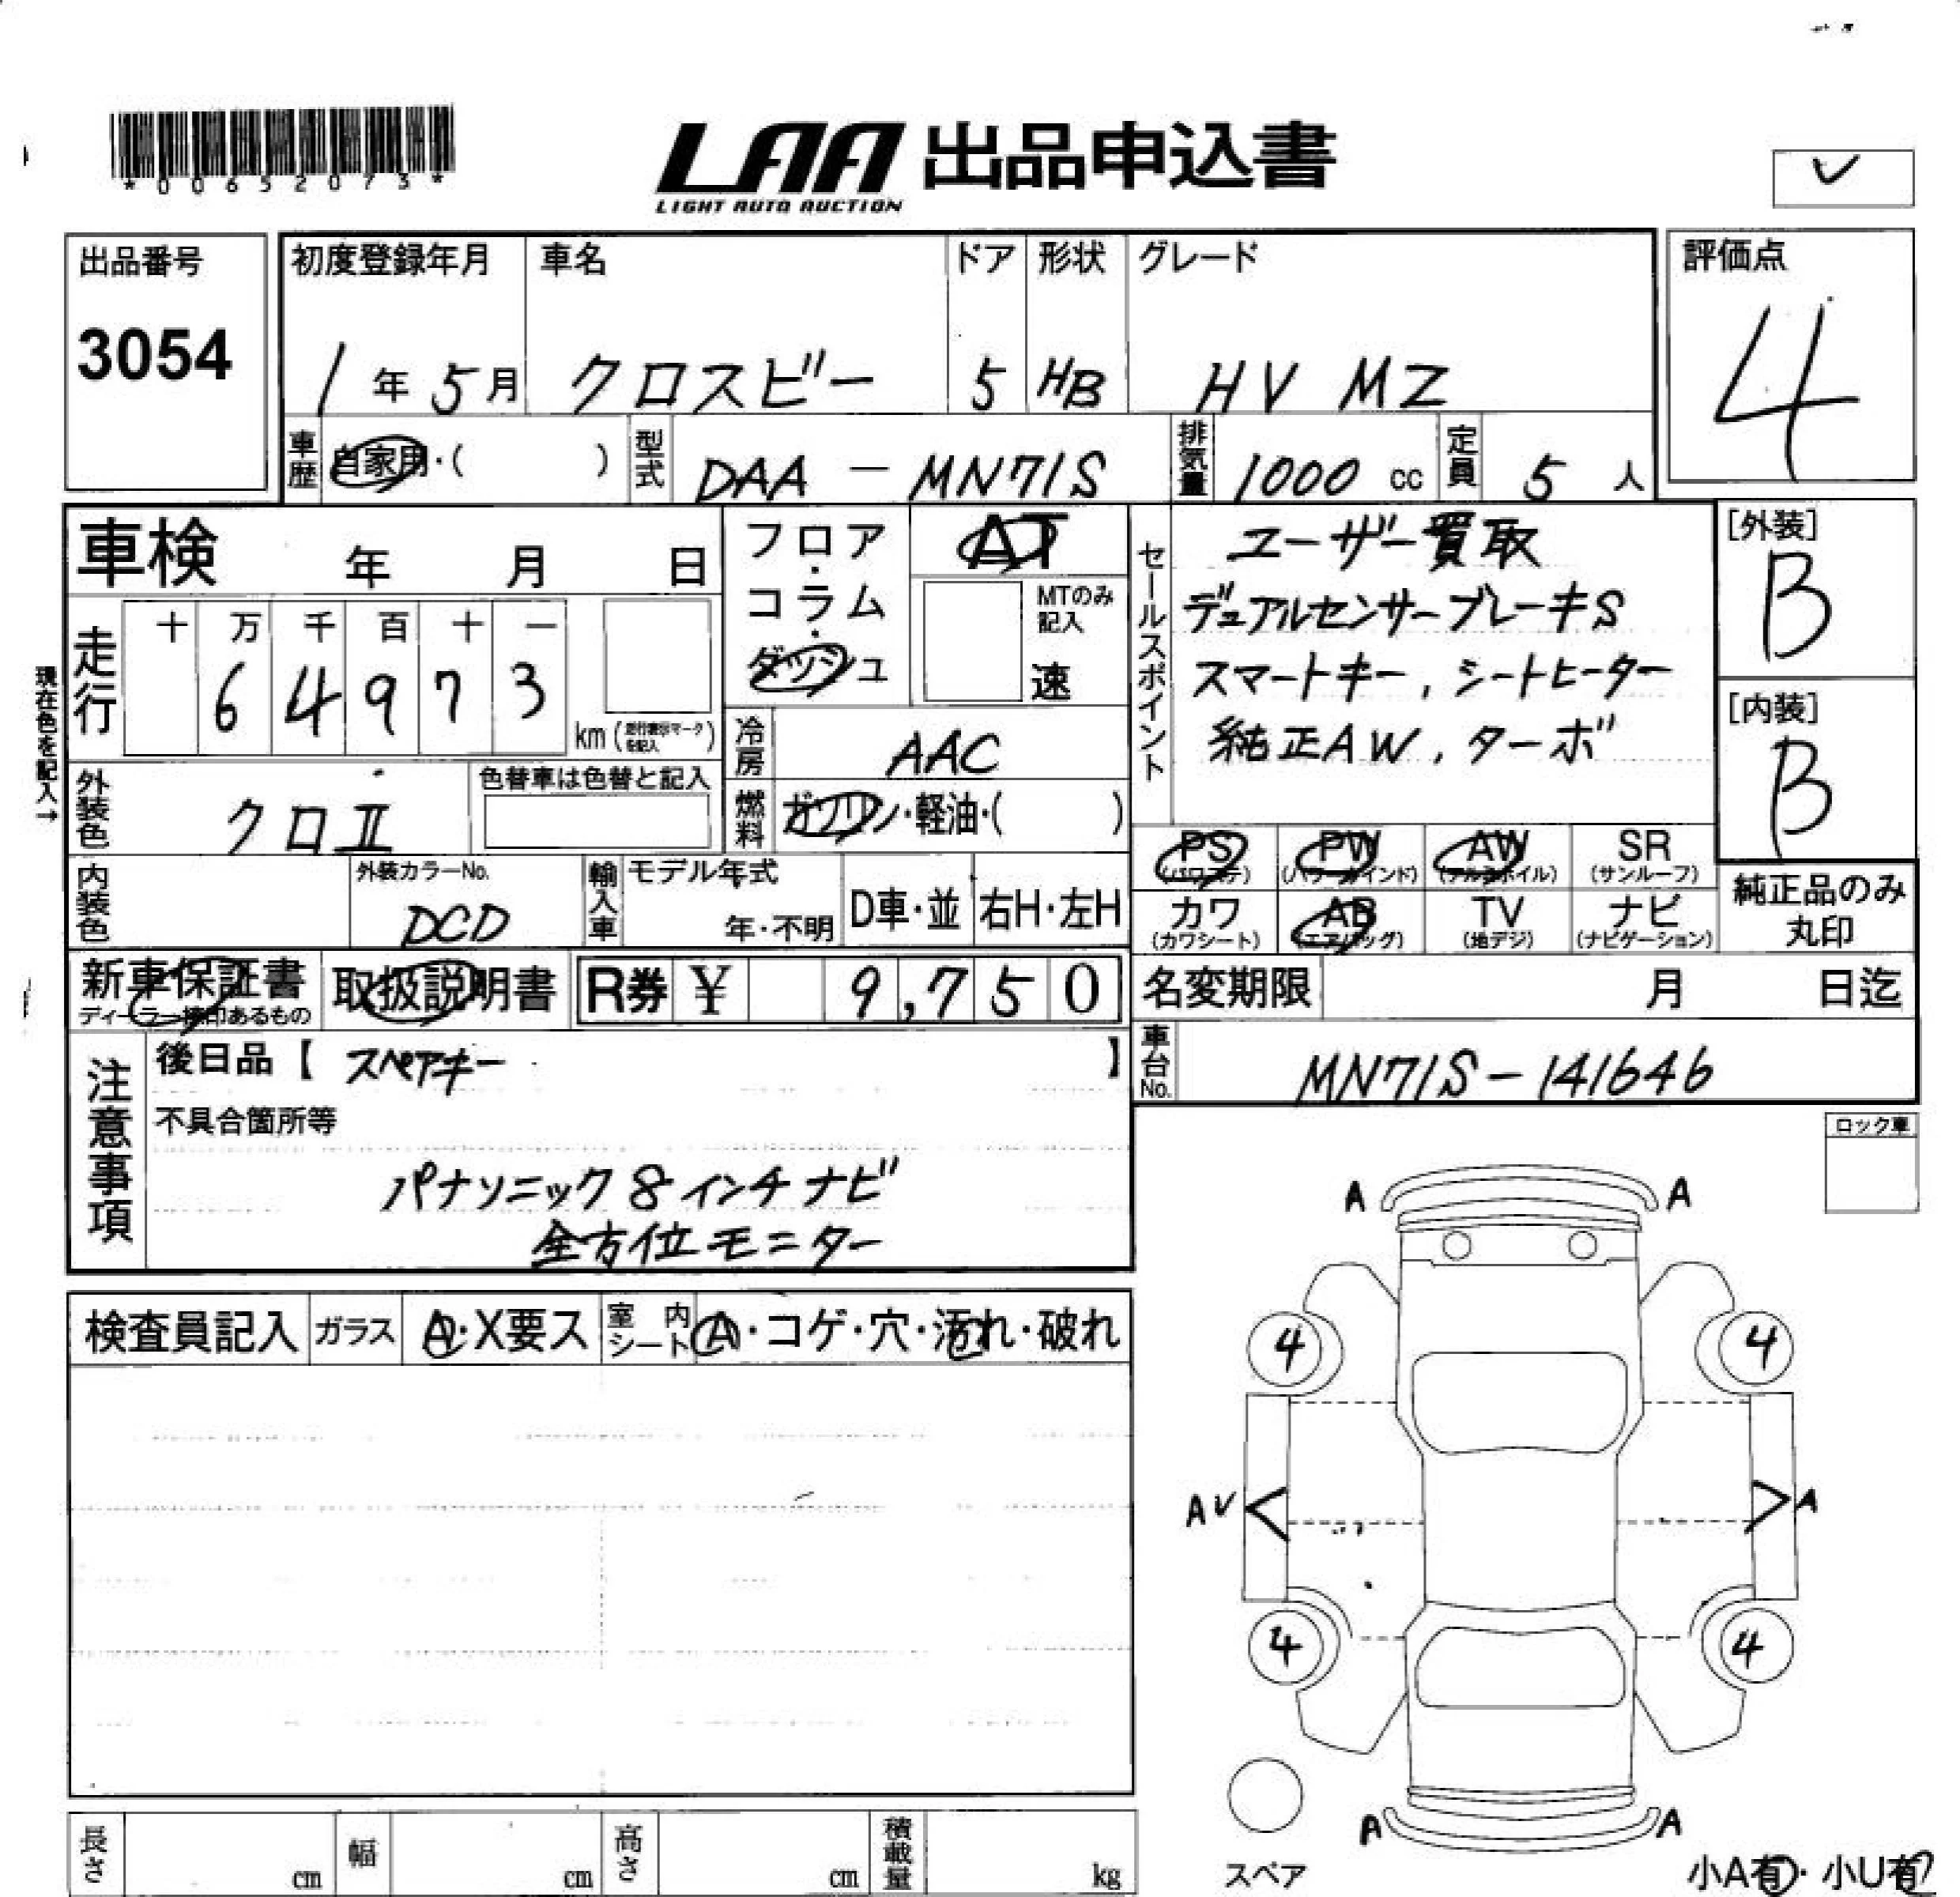 *00652073*
LAA 出品申込書
LIGHT AUTO AUCTION
出品番号
3054
初度登録年月
1年5月
車名
クロスビー
ドア
5
形状
HB
グレード
HV MZ
評価点
4
車歴
自家用・( )
型式
DAA - MN71S
排気量
1000 cc
定員
5 人
車検 年 月 日
現在色を記入→
走行
十 万 千 百 十 一
6 4 9 7 3
km (走行表示マークを記入)
フロア・コラム・ダッシュ
AT
MTのみ記入
速
冷房
AAC
燃料
ガソリン・軽油・( )
セールスポイント
ユーザー買取
デュアルセンサーブレーキS
スマートキー, シートヒーター
純正AW, ターボ
[外装]
B
[内装]
B
外装色
クロII
色替車は色替と記入
内装色
外装カラーNo.
DCD
輸入車
モデル年式
年・不明
D車・並
右H・左H
PS (パワステ)
PW (パワーウインド)
AW (アルミホイル)
SR (サンルーフ)
カワ (カワシート)
AB (エアバッグ)
TV (地デジ)
ナビ (ナビゲーション)
純正品のみ丸印
新車保証書
ディーラー捺印あるもの
取扱説明書
R券 ¥ 9,750
名変期限 月 日迄
車台No.
MN71S-141646
注意事項
後日品【 スペアキー 】
不具合箇所等
パナソニック8インチナビ
全方位モニター
ロック車
検査員記入
ガラス
A・X要ス
室内シート
A・コゲ・穴・汚れ・破れ
A A
4 4
AV A
4 4
A A
スペア
小A有・小U有
長さ cm
幅 cm
高さ cm
積載量 kg